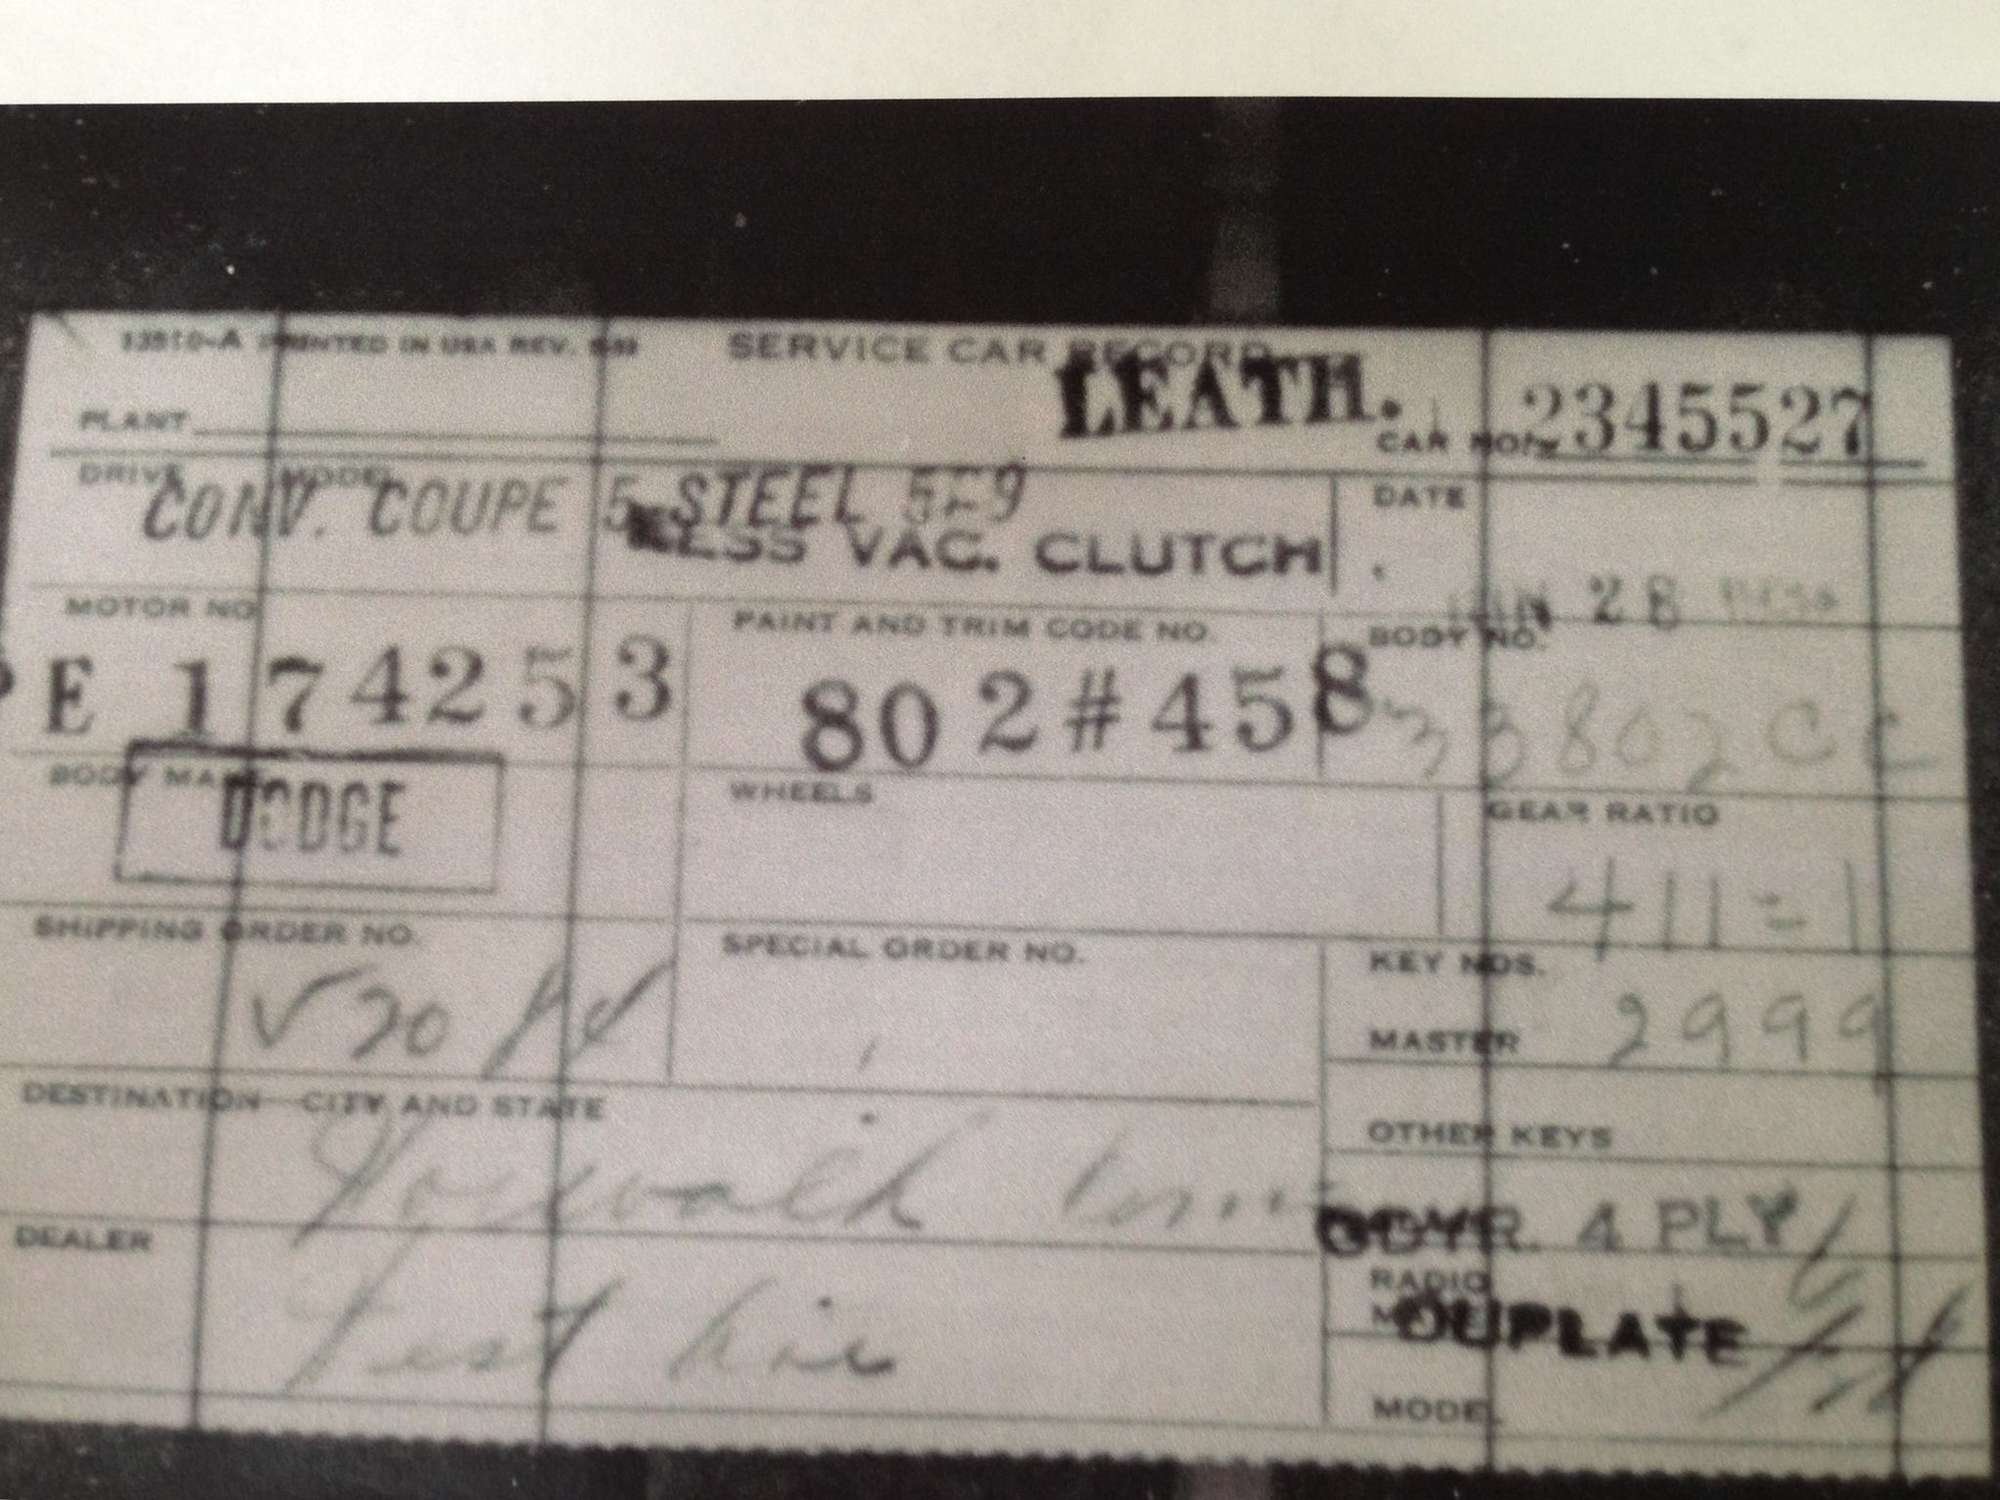 PRINTED IN USA REV. SERVICE CAR RECORD
LEATH.
PLANT CAR NO. 2345527
DRIVE MODEL DATE
CONV. COUPE 5 STEEL 529
LESS VAC. CLUTCH
JAN 28
MOTOR NO PAINT AND TRIM CODE NO. BODY NO.
PE 174253 802#458 33802CC
BODY MAKE WHEELS GEAR RATIO
DODGE
411=1
SHIPPING ORDER NO. SPECIAL ORDER NO. KEY NOS.
V20
MASTER 2999
DESTINATION—CITY AND STATE
OTHER KEYS
Norwalk Conn
GDYR. 4 PLY
DEALER
RADIO
DUPLATE
MODEL